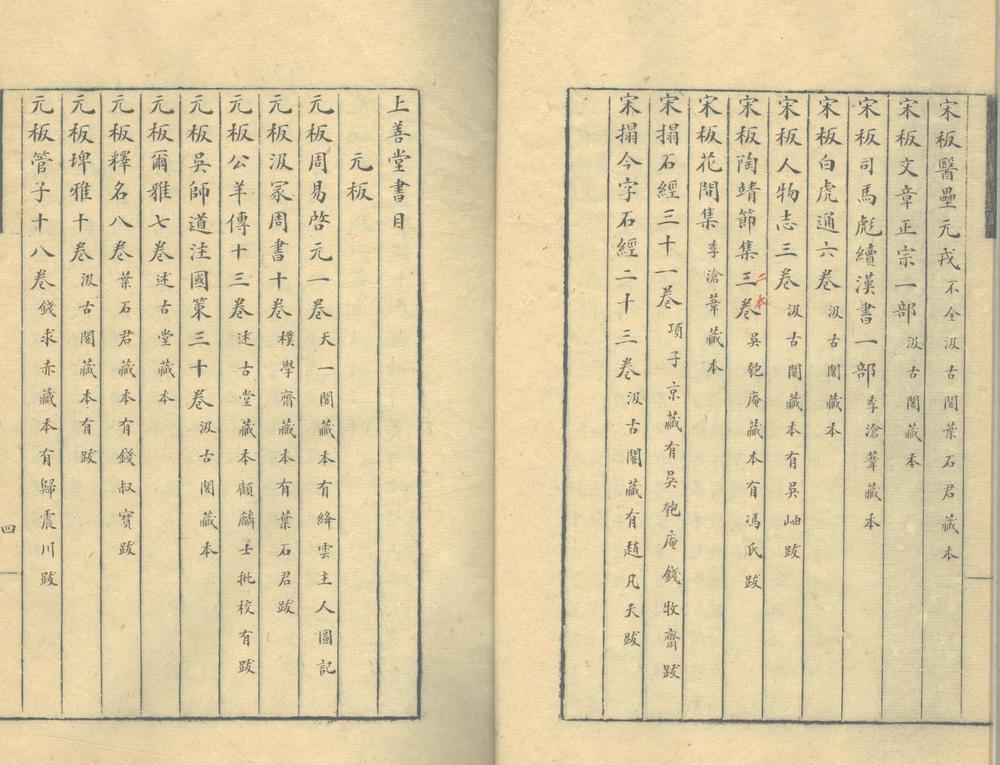 宋板醫壘元戎不全汲古閣葉石君藏本
宋板文章正宗一部汲古閣藏本
宋板司馬彪續漢書一部季滄葦藏本
宋板白虎通六卷汲古閣藏本
宋板人物志三卷汲古閣藏本有吳岫跋
宋板陶靖節集三卷吳匏庵藏本有馮氏跋
二本
宋板花間集季滄葦藏本
宋搨石經三十一卷項子京藏有吳匏庵錢牧齋跋
宋搨今字石經二十三卷汲古閣藏有趙凡夫跋
上善堂書目
元板
元板周易啓元一卷天一閣藏本有絳雲主人圖記
元板汲冢周書十卷樸學齋藏本有葉石君跋
元板公羊傳十三卷述古堂藏本顧麟士批校有跋
元板吳師道注國策三十卷汲古閣藏本
元板爾雅七卷述古堂藏本
元板釋名八卷葉石君藏本有錢叔寶跋
元板埤雅十卷汲古閣藏本有跋
元板管子十八卷錢求赤藏本有歸震川跋
四